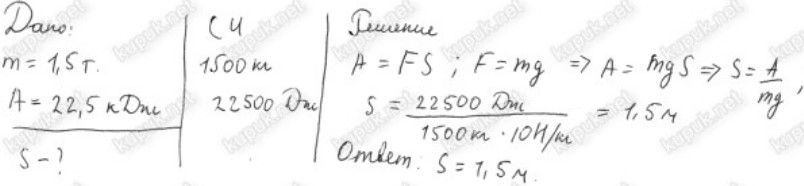 Дано:
m = 1,5 т.
A = 22,5 кДж
S - ?
СИ
1500 кг
22500 Дж
Решение
A = FS ; F = mg ⇒ A = mgS ⇒ S = A/mg ,
S = 22500 Дж / 1500 кг · 10Н/кг = 1,5 м
Ответ: S = 1,5 м.
kupuk.net